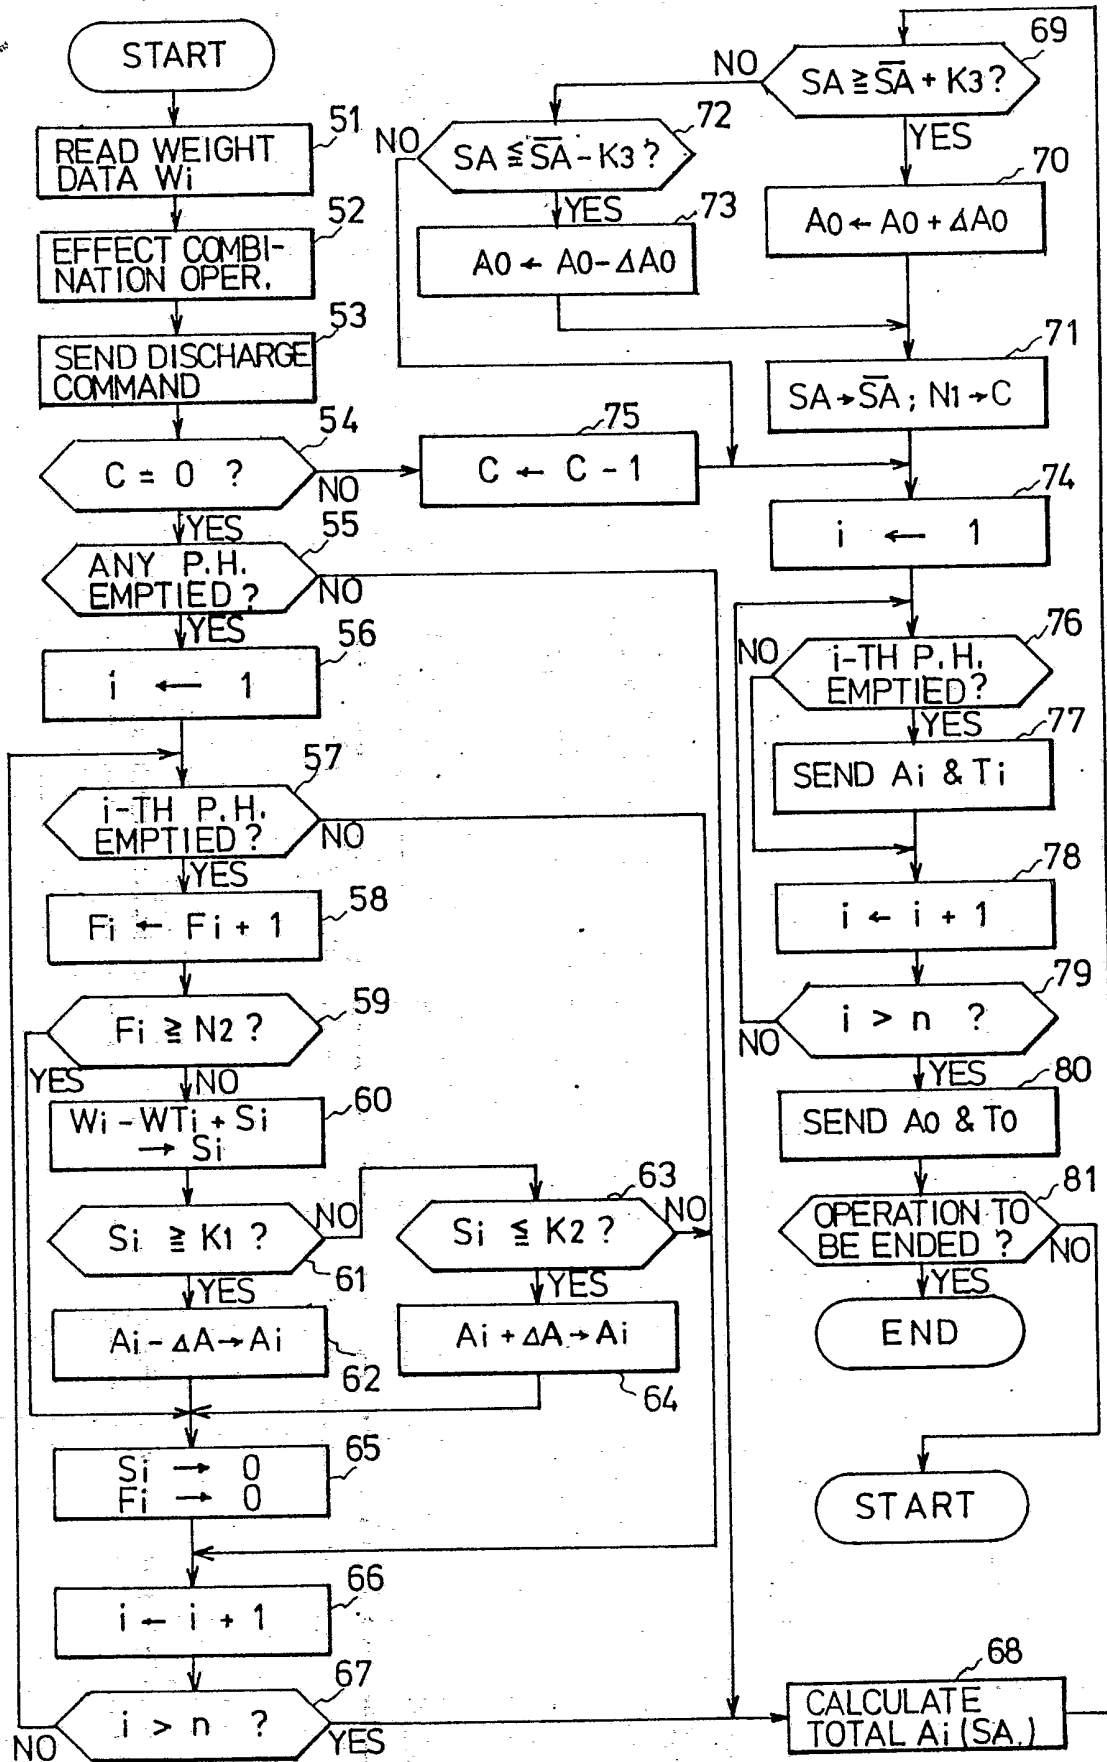 START
51
READ WEIGHT
DATA Wi
52
EFFECT COMBI-
NATION OPER.
53
SEND DISCHARGE
COMMAND
54
C = 0 ?
NO
YES
55
ANY P.H.
EMPTIED ?
NO
YES
56
i ← 1
57
i-TH P.H.
EMPTIED ?
NO
YES
58
Fi ← Fi + 1
59
Fi ≧ N2 ?
YES
NO
60
Wi - WTi + Si
→ Si
61
Si ≧ K1 ?
NO
YES
62
Ai - ΔA → Ai
63
Si ≦ K2 ?
NO
YES
64
Ai + ΔA → Ai
65
Si → 0
Fi → 0
66
i ← i + 1
67
i > n ?
NO
YES
68
CALCULATE
TOTAL Ai (SA.)
69
SA ≧ S̅A̅ + K3 ?
NO
YES
70
A0 ← A0 + ΔA0
71
SA → S̅A̅ ; N1 → C
72
SA ≦ S̅A̅ - K3 ?
NO
YES
73
A0 ← A0 - ΔA0
74
i ← 1
75
C ← C - 1
76
i-TH P.H.
EMPTIED ?
NO
YES
77
SEND Ai & Ti
78
i ← i + 1
79
i > n ?
NO
YES
80
SEND A0 & T0
81
OPERATION TO
BE ENDED ?
NO
YES
END
START